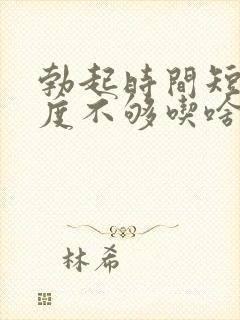 勃起時間短
度不够喫啥
林希